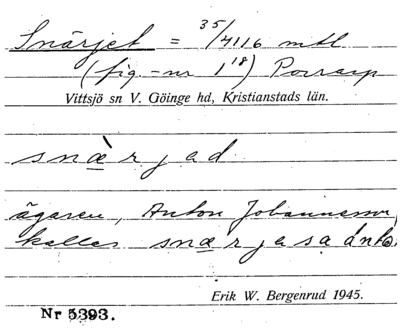 Snärjet = 35/4116 mtl
(fig.-nr 1¹⁸) Porrarp
Vittsjö sn V. Göinge hd, Kristianstads län.
snæ̀rjad
ägaren, Anton Johannesson,
kallas snærjasa
Erik W. Bergenrud 1945.
Nr 5393.